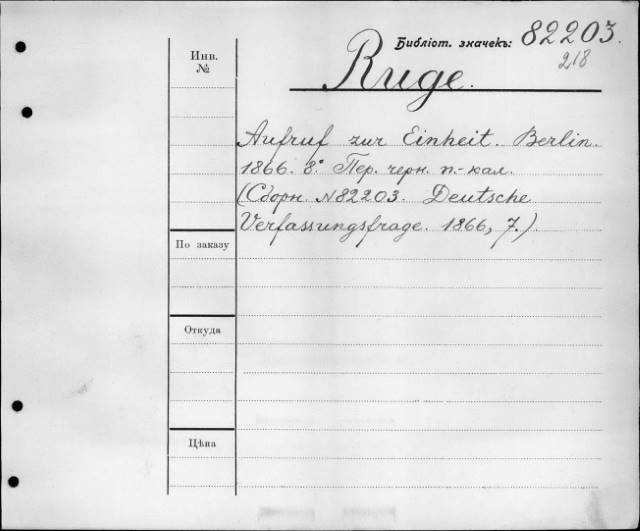 Библіот. значекъ: 82203.
218
Инв.
№
Ruge.
Aufruf zur Einheit. Berlin.
1866. 8°. Пер. черн. п.-кал.
(Сборн. №82203. Deutsche
Verfassungsfrage. 1866, 7.)
По заказу
Откуда
Цѣна